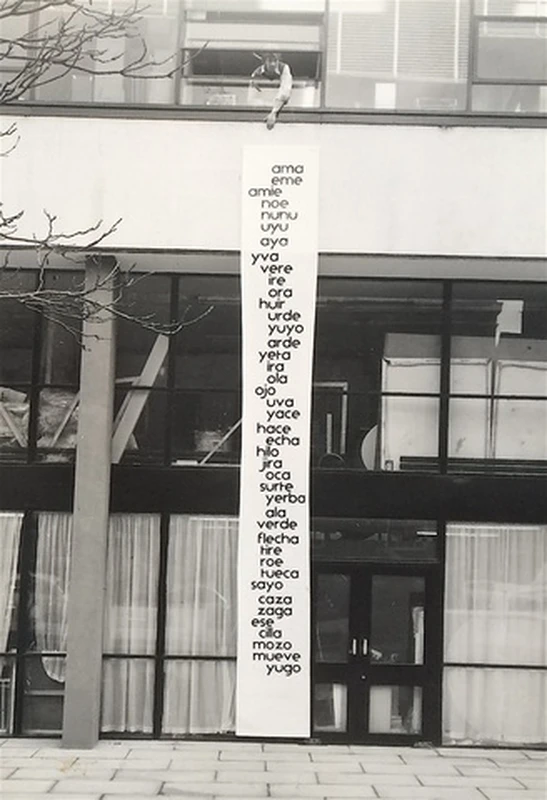 ama
eme
amie
noe
nunu
uyu
aya
yva
vere
ire
ora
huir
urde
yuyo
arde
yeta
ira
ola
ojo
uva
yace
hace
echa
hilo
jira
oca
surte
yerba
ala
verde
flecha
tire
roe
tueca
sayo
caza
zaga
ese
cilla
mozo
mueve
yugo